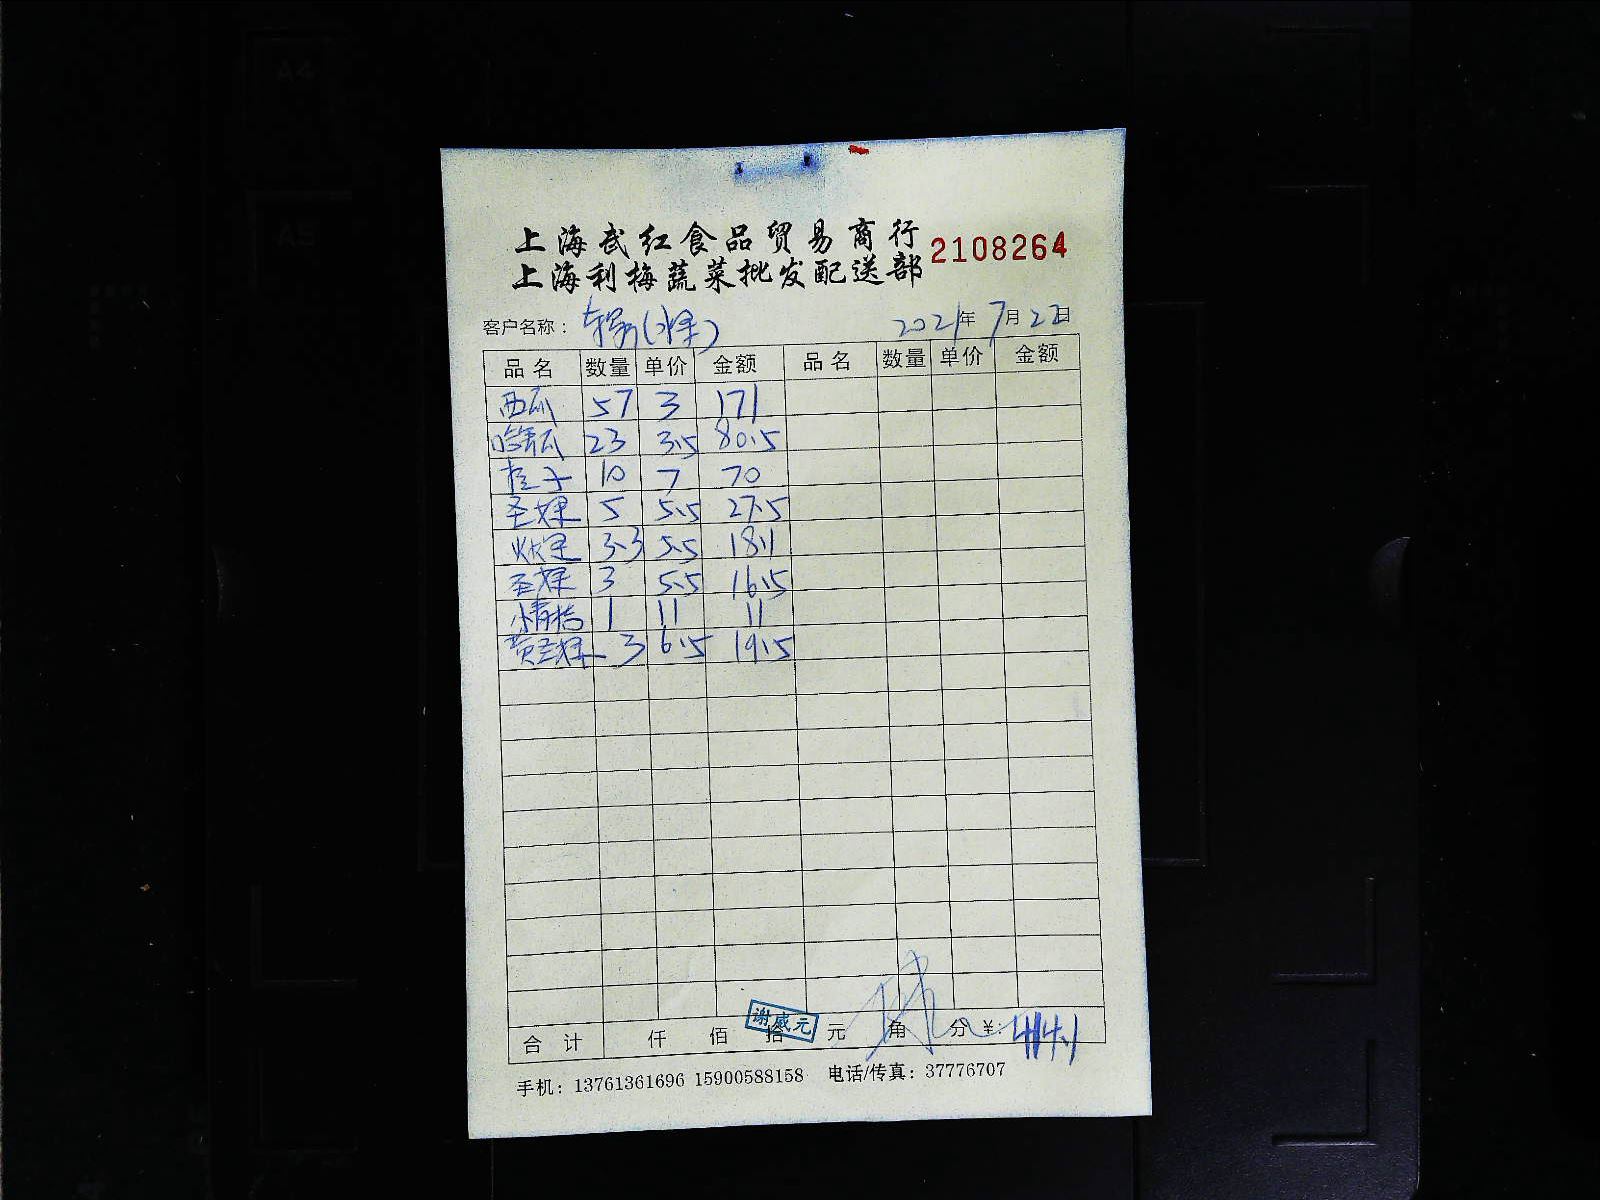 上海武红食品贸易商行
上海利梅蔬菜批发配送部
2108264
客户名称： (水果) 2021年7月22日
品名 数量 单价 金额 品名 数量 单价 金额
西瓜 57 3 171
哈密瓜 23 3.5 80.5
桔子 10 7 70
圣女果 5 5.5 27.5
3.3 5.5 18.1
圣女果 3 5.5 16.5
小青桔 1 11 11
黄圣女果 3 6.5 19.5
合计 仟 佰 拾 元 角 分 ¥: 414.1
谢威元
手机：13761361696 15900588158 电话/传真：37776707
A4
A5